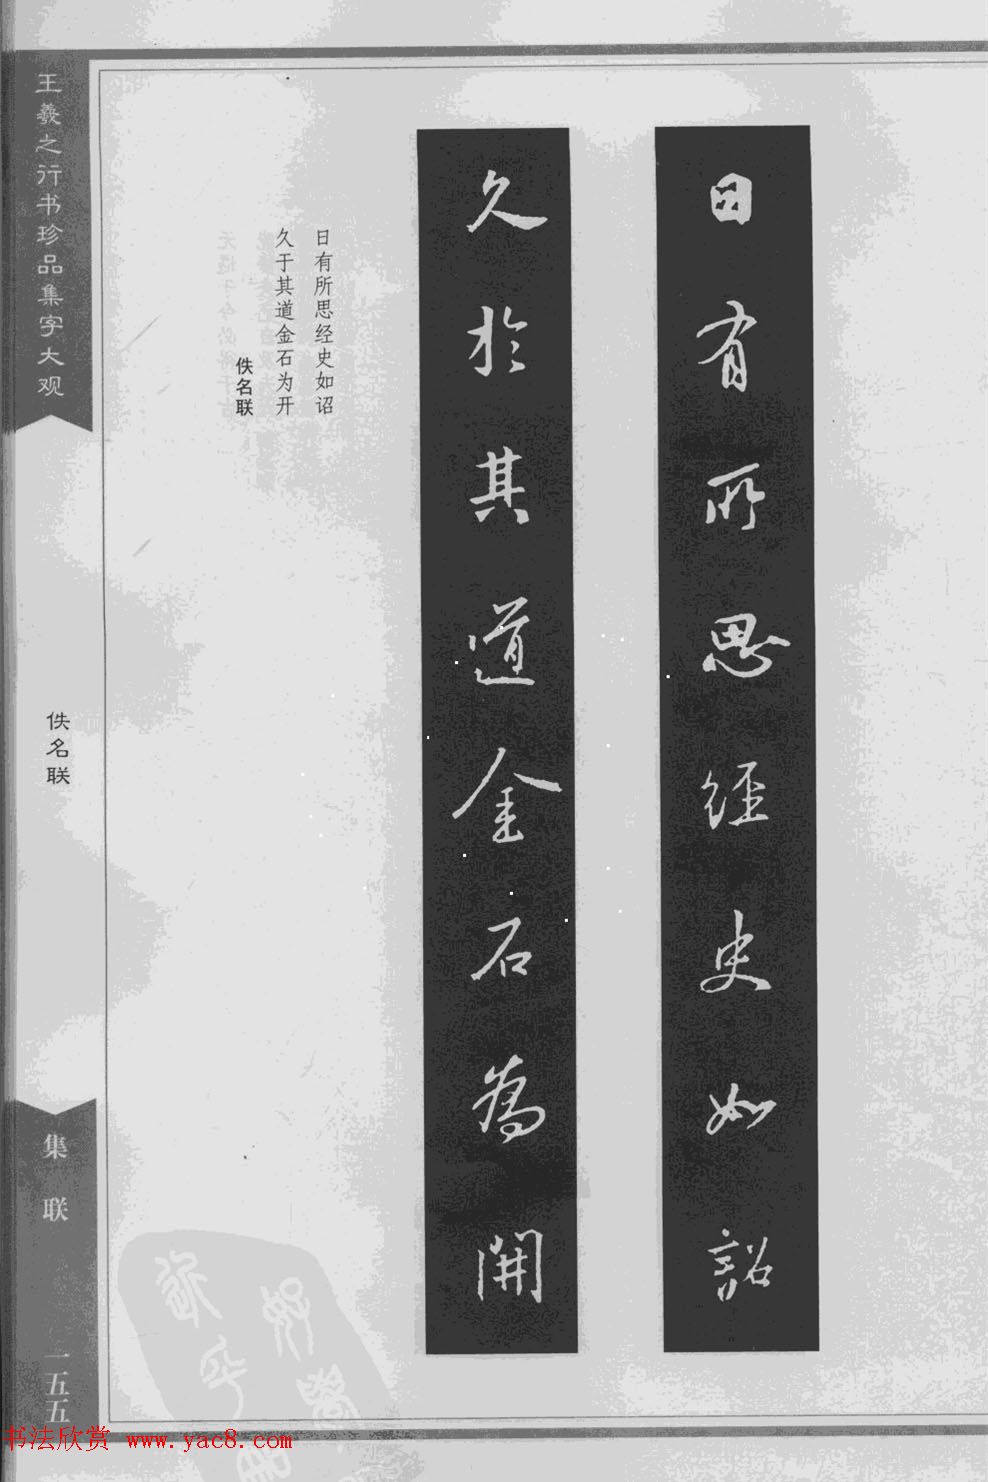 王羲之行书珍品集字大观
日有所思經史如詔
久於其道金石為開
日有所思经史如诏
久于其道金石为开
佚名联
佚名联
集联
一五五
书法欣赏 www.yac8.com